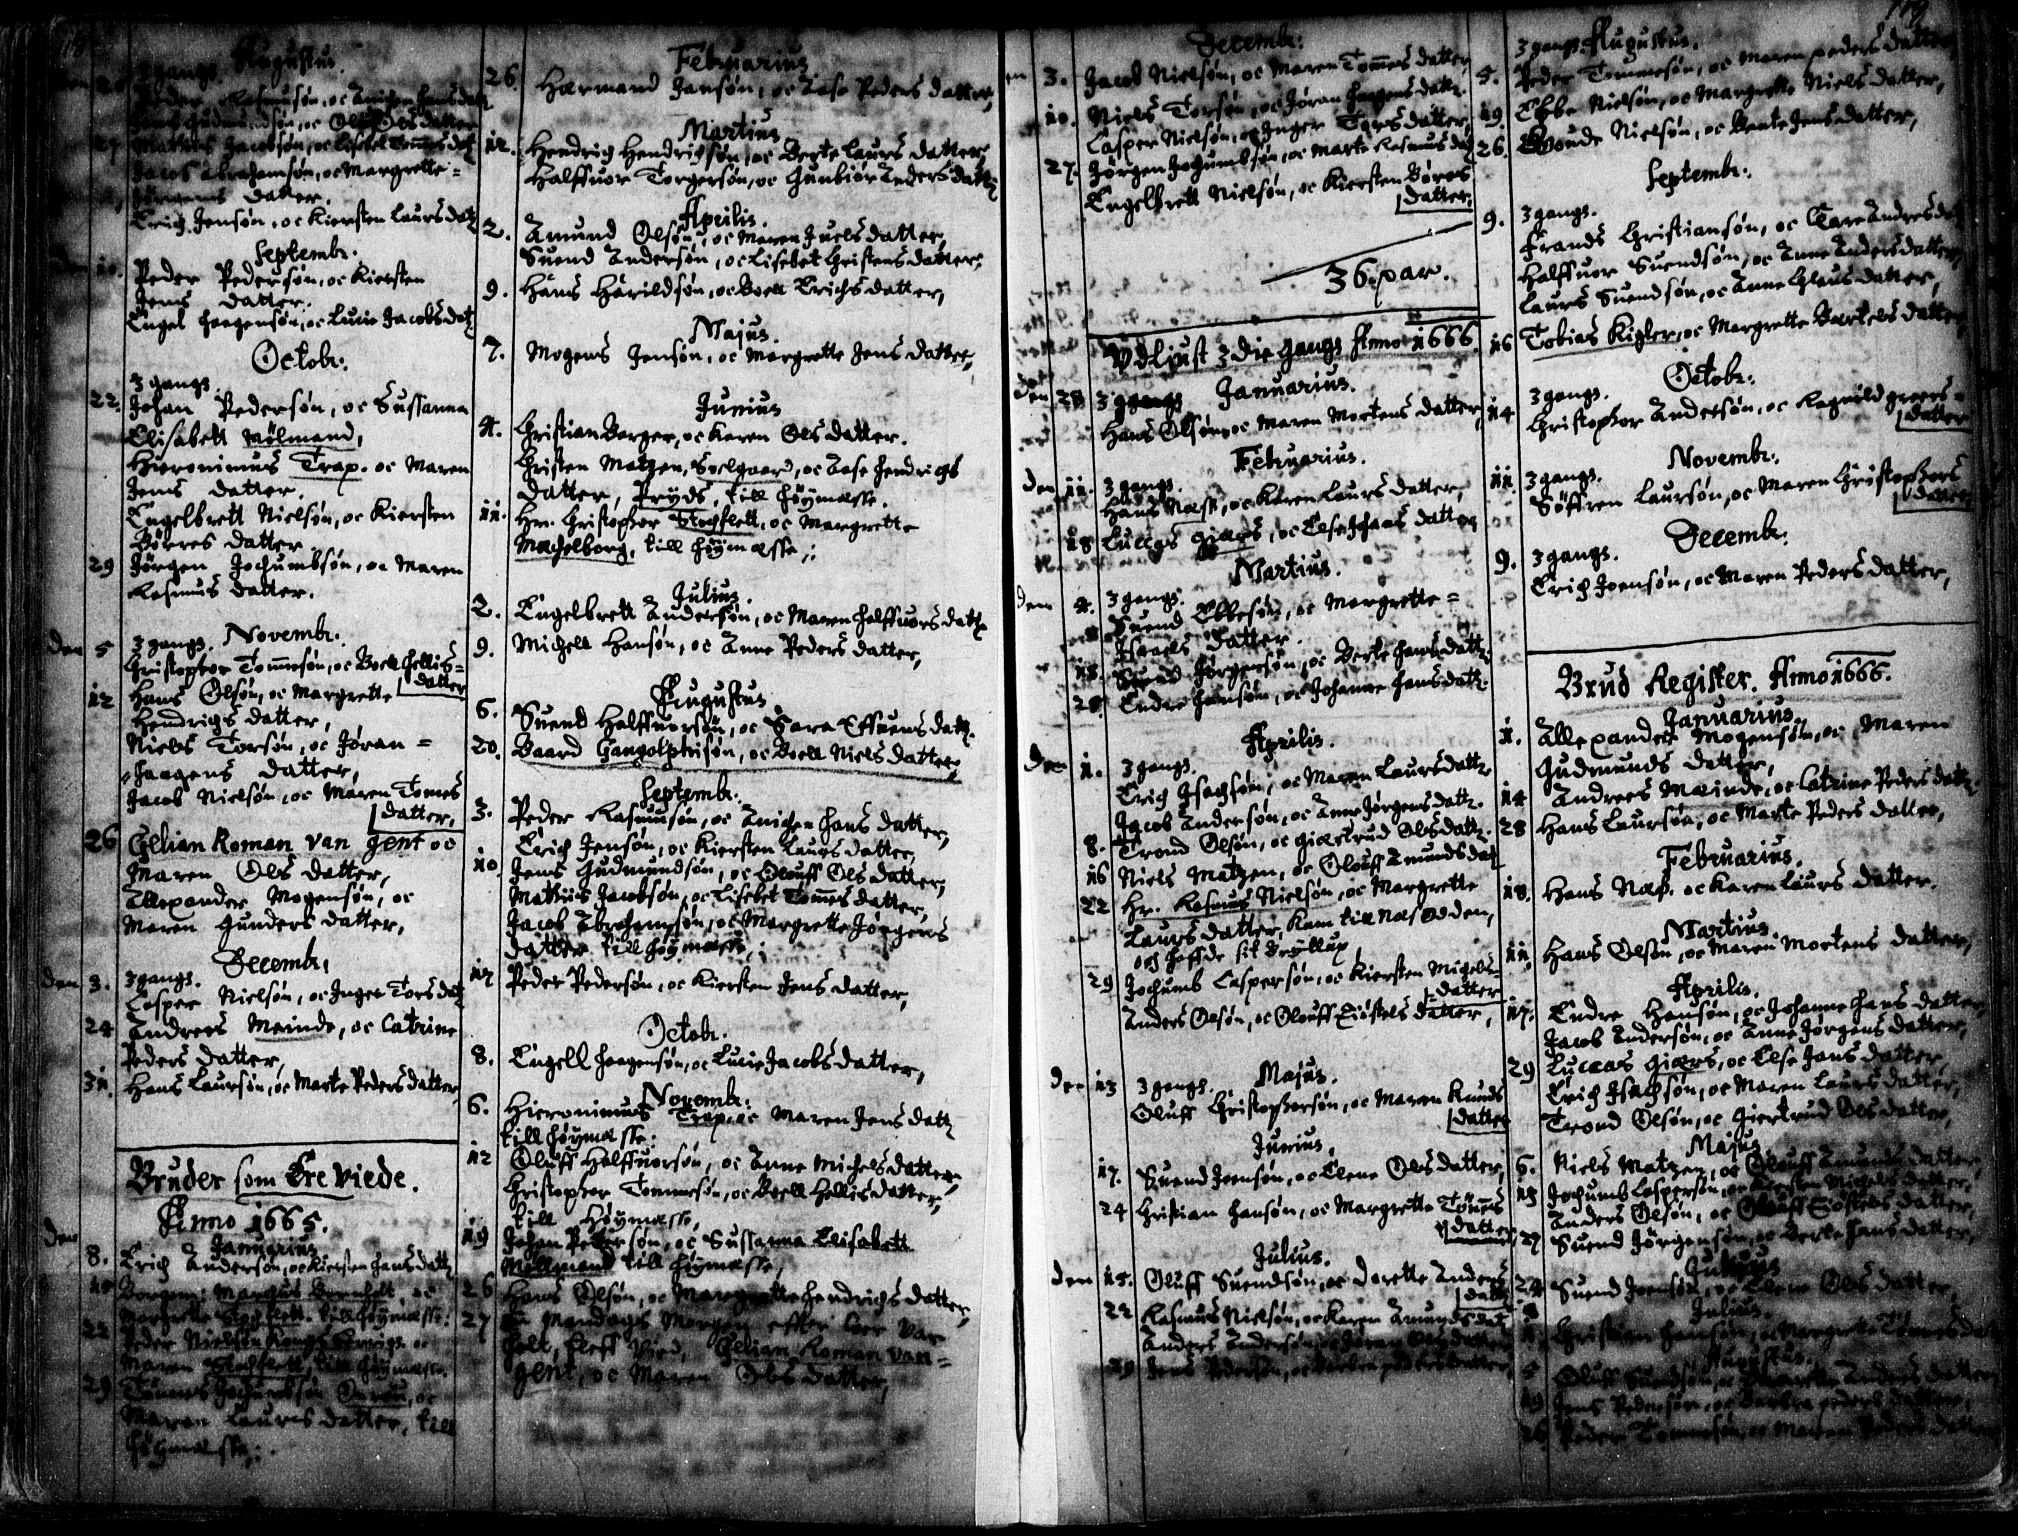 Augustus.
3 gangs
Peder Rasmusøn, oc Anichen Hans dat
Jens Gudmundsøn, oc Oluff Ols datter
27 Mathiis Jacobsøn, oc Lisebet Tomes dat
Jacob Abrahamsøn, oc Margrette =
Jørgens datter.
Erich Jensøn, oc Kiersten Laurs dat
Septembr.
10. Peder Pedersøn, oc Kiersten
Jens datter.
Engel Haagensøn, oc Lucie Jacobs dat
Octobr:
3 gangs
22. Johan Pedersøn, oc Sussanna
Elisabett Mølmand,
Hieronimus Trap. oc Maren
Jens datter.
Engelbrett Nielsøn, oc Kiersten
Børres datter
29 Jørgen Jochumbsøn, oc Maren
Rasmus datter.
Novembr.
den 5 3 gangs.
Christopher Tommesøn, oc Boell Hellis=
datter
12 Hans Olsøn, oc Margrette
Hendrichs datter,
Niels Torsøn, oc Jøran =
Haagens datter,
Jacob Nielsøn, oc Maren Tomes
datter,
26 Gelian Roman van gent oc
Maren Ols datter,
Allexander Mogensøn, oc
Maren Gunders datter,
Decembr.
den 3. 3 gangs.
Casper Nielsøn, oc Inger Tors dat
24 Andrees Meinde, oc Catrine
Peders datter,
31. Hans Laursøn, oc Marte Peders datter
Bruder som Ere Viede.
Anno 1665.
den Januarius
8. Erich Andersøn, oc Kiersten Hans datt
Margrette Stochflett. till Høymasse:
22 Peder Nielsøn
Maren Stochflett, till Høymasse.
29 Tønnes Jochumbsøn
Maren Laurs datter, till
Høymasse:.
Februarius
26. Harmand Jansøn, oc Aase Peders datter,
Martius
12. Hendrich Hendrichsøn, oc Berte Laurs datter,
Halffuor Torgersøn, oc Gunbior Anders datt
Aprilis.
2. Amund Olsøn, oc Maren Juels datter,
Suend Andersøn, oc Lisebet Christens datter,
9. Hans Harildsøn, oc Boell Erichs datter,
Majus.
7. Mogens Jensøn, oc Margrette Jens datter,
Junius
4. Christian Berger, oc Karen Ols datter.
Christen Matzen, Soelgaard, oc Aase Hendrichs
datter, Pryds, till Høymasse.
11. Hr. Christopher Stochflett, oc Margrette
Machelborg, till Høymasse,:
Julius.
2. Engelbrett Andersøn, oc Maren Halffuors datt
9. Michell Hansøn, oc Anne Peders datter,
Augustus
6. Suend Halffuorsøn, oc Sara Effuens datt.
20. Baard Gangolphsøn, oc Boell Niels datter,
Septembr.
3. Peder Rasmusøn, oc Anichen Hans datter,
Erich Jensøn, oc Kiersten Laurs datter,
10. Jens Gudmundsøn, oc Olouff Ols datter,
Mathiis Jacobsøn, oc Lisebet Tomes datter,
Jacob Abrahamsøn, oc Margrette Jørgens
datter till Høymasse,:
17 Peder Pedersøn, oc Kiersten Jens datter,
Octobr.
8. Engell Haagensøn, oc Lucie Jacobs datter,
Novembr:
6. Hieronimus Trap, oc Maren Jens datt
till Høymasse:
12 Oluff Halffuorsøn, oc Anne Michels datter
Christopher Tommesøn, oc Boell Hellis datter,
till Høymasse,
19 Johan Pedersøn, oc Sussanna Elisabett
Møllmand till Høymasse,
26 Hans Olsøn, oc Margrette Hendrichs datter,
27 Mandags Morgen effter
Gelian Roman van=
gent, oc Maren Ols datter,
Decembr:
3. Jacob Nielsøn, oc Maren Tommes datter,
10. Niels Torsøn, oc Jøran Haagens datt.
Casper Nielsøn, oc Inger Tors datter,
27. Jørgen Jochumbsøn, oc Marte Rasmus dat
Engelbrett Nielsøn, oc Kiersten Børres
datter.
36. par.
Vdliust 3die gangs Anno 1666.
Januarius.
den 28 3 gangs
Hans Olsøn, oc Maren Mortens datter,
Februarius.
den 11. 3 gangs.
Hans Nasz, oc Karen Laurs datter,
18 Luccas Giærs, oc Else Johans datter
Martius.
den 4. 3 gangs.
Suend Ebbesøn, oc Margrette =
Isaacs datter.
18. Suend Jørgensøn, oc Berte Hans datt.
28 Endre Hansøn, oc Johanne Hans datt.
Aprilis.
den 1. 3 gangs.
Erich Isachsøn, oc Maren Laurs datt.
Jacob Andersøn, oc Anne Jørgens datt.
8. Trond Olsøn, oc Giertrud Ols datt.
16 Niels Matzen, oc Olouff Amunds dat
22 Hr. Rasmus Nielsøn, oc Margrette
Laurs datter, kam till Nasodden,
och haffde sit Brøllup
29 Jochumb Caspersøn, oc Kiersten Michels=
datter
Anders Olsøn, oc Olouff Siøstels datter,
Majus.
den 13 3 gangs.
Oluff Christophersøn, oc Maren Knuds
datter
Junius.
17. Suend Joensøn, oc Elene Ols datter,
24 Christian Hansøn, oc Margrette Tønnes
datter,
Julius.
den 15. Oluff Suendsøn, oc Dorette Anders
datt
22 Rasmus Nielsøn, oc Karen Amunds dat
Anders Andersøn, oc Jøran Ols datter
29 Jens Pedersøn, oc Barbra peders datter,
119
3 gangs. Augustus.
5. Peder Tommesøn, oc Maren peders datter,
19 Ebbe Nielsøn, oc Margrette Niels datter,
26. Gounde Nielsøn, oc Beate Jens datter,
Septembr:
9. 3 gangs.
Frands Christiansøn, oc Tare Anders dat
Halffuor Suendsøn, oc Anne Anders datter,
Laurs Suendsøn, oc Anne Claus datter,
16 Tobias Kigler, oc Margrette Bartels datter
Octobr:
3 gangs.
14 Christopher Andersøn, oc Ragnild Greers =
datter
Novembr:
11. 3 gangs.
Søffren Laursøn, oc Maren Christophers
datter
Decembr:
9. 3 gangs.
Erich Joensøn, oc Maren Peders datter,
Brud Register. Anno 1666.
Januarius.
1. Allexander Mogensøn, oc Maren
Gudmunds datter,
14 Andrees Meinde, oc Catrine Peders datt.
28 Hans Laursøn, oc Marte Peders datter,
Februarius.
18. Hans Nasz. oc Karen Laurs datter.
Martius.
11. Hans Olsøn, oc Maren Mortens datter,
Aprilis.
17. Endre Hansøn, oc Johanne Hans datter,
Jacob Andersøn, oc Anne Jørgens datter,
29 Luccas Giærs, oc Else Jans datter,
Erich Isachsøn, oc Maren Laurs datter,
Trond Olsøn, oc Giertrud Ols datter,
Majus
6. Niels Matzen, oc Olouff Amunds datter,
13 Jochumb Caspersøn, oc Kiersten Michels datter,
Anders Olsøn, oc Olouff Siøstels datter,
27 Suend Jørgensøn, oc Berte Hans datter,
Junius
24 Suend Joensøn, oc Elene Ols datter
Julius
Christian Hansøn, oc Margrette Tønnes dat
Augustus.
5 Oluff Suendsøn, oc Dorette Anders datter
19 Jens Pedersøn, oc Barbra peders datter
26 Peder Tommesøn, oc Maren Peders datter